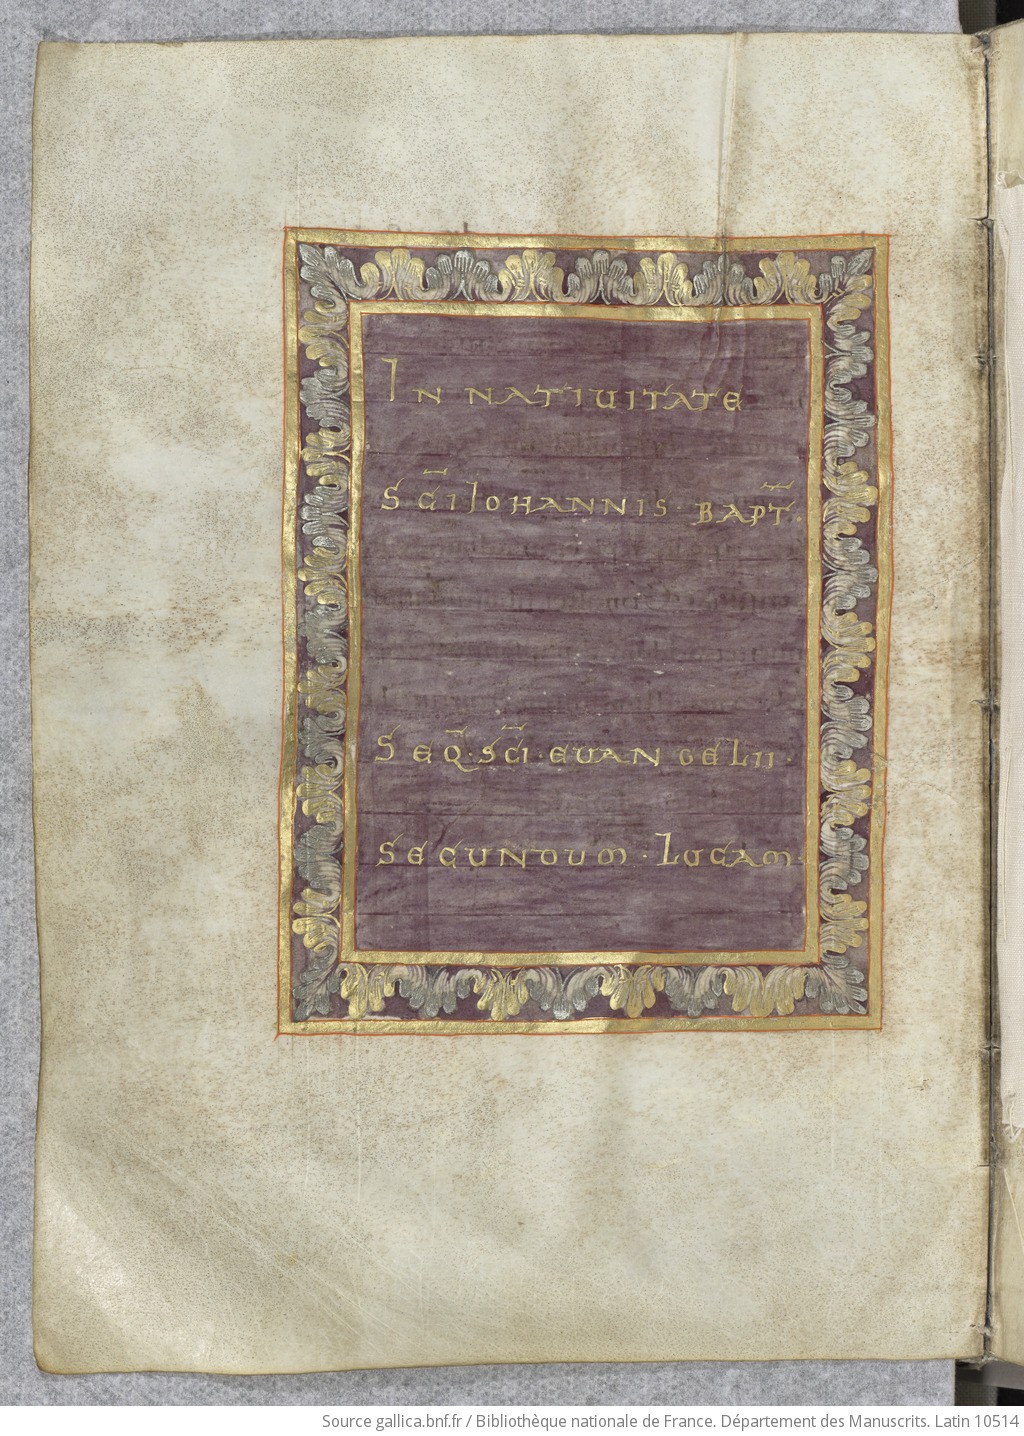 IN NATIUITATE
SC̄I IOHANNIS· BAPT̄.
SEQ̄· SC̄I· EUANGELII·
SECUNDUM· LUCAM·
Source gallica.bnf.fr / Bibliothèque nationale de France. Département des Manuscrits. Latin 10514